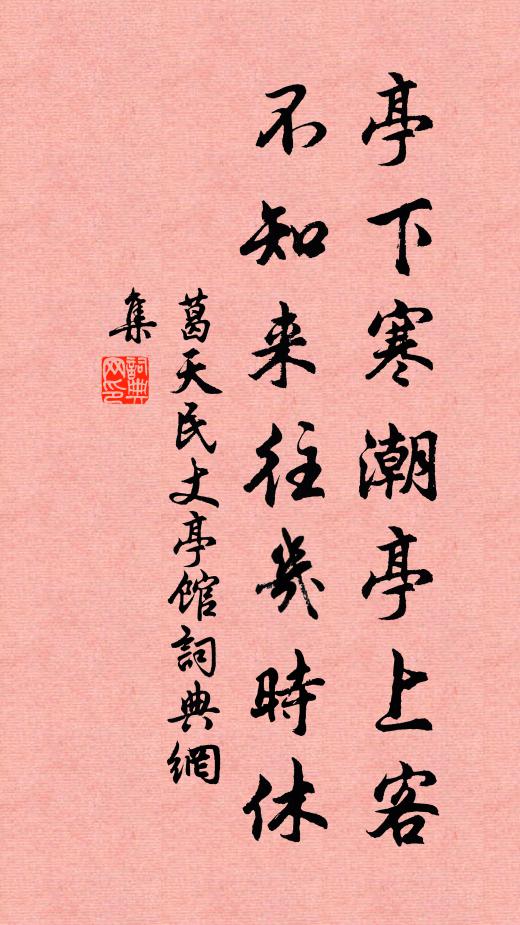 亭下寒潮亭上客
不知来往幾時休
葛天民丈亭馆詞典網
集
詞典网印